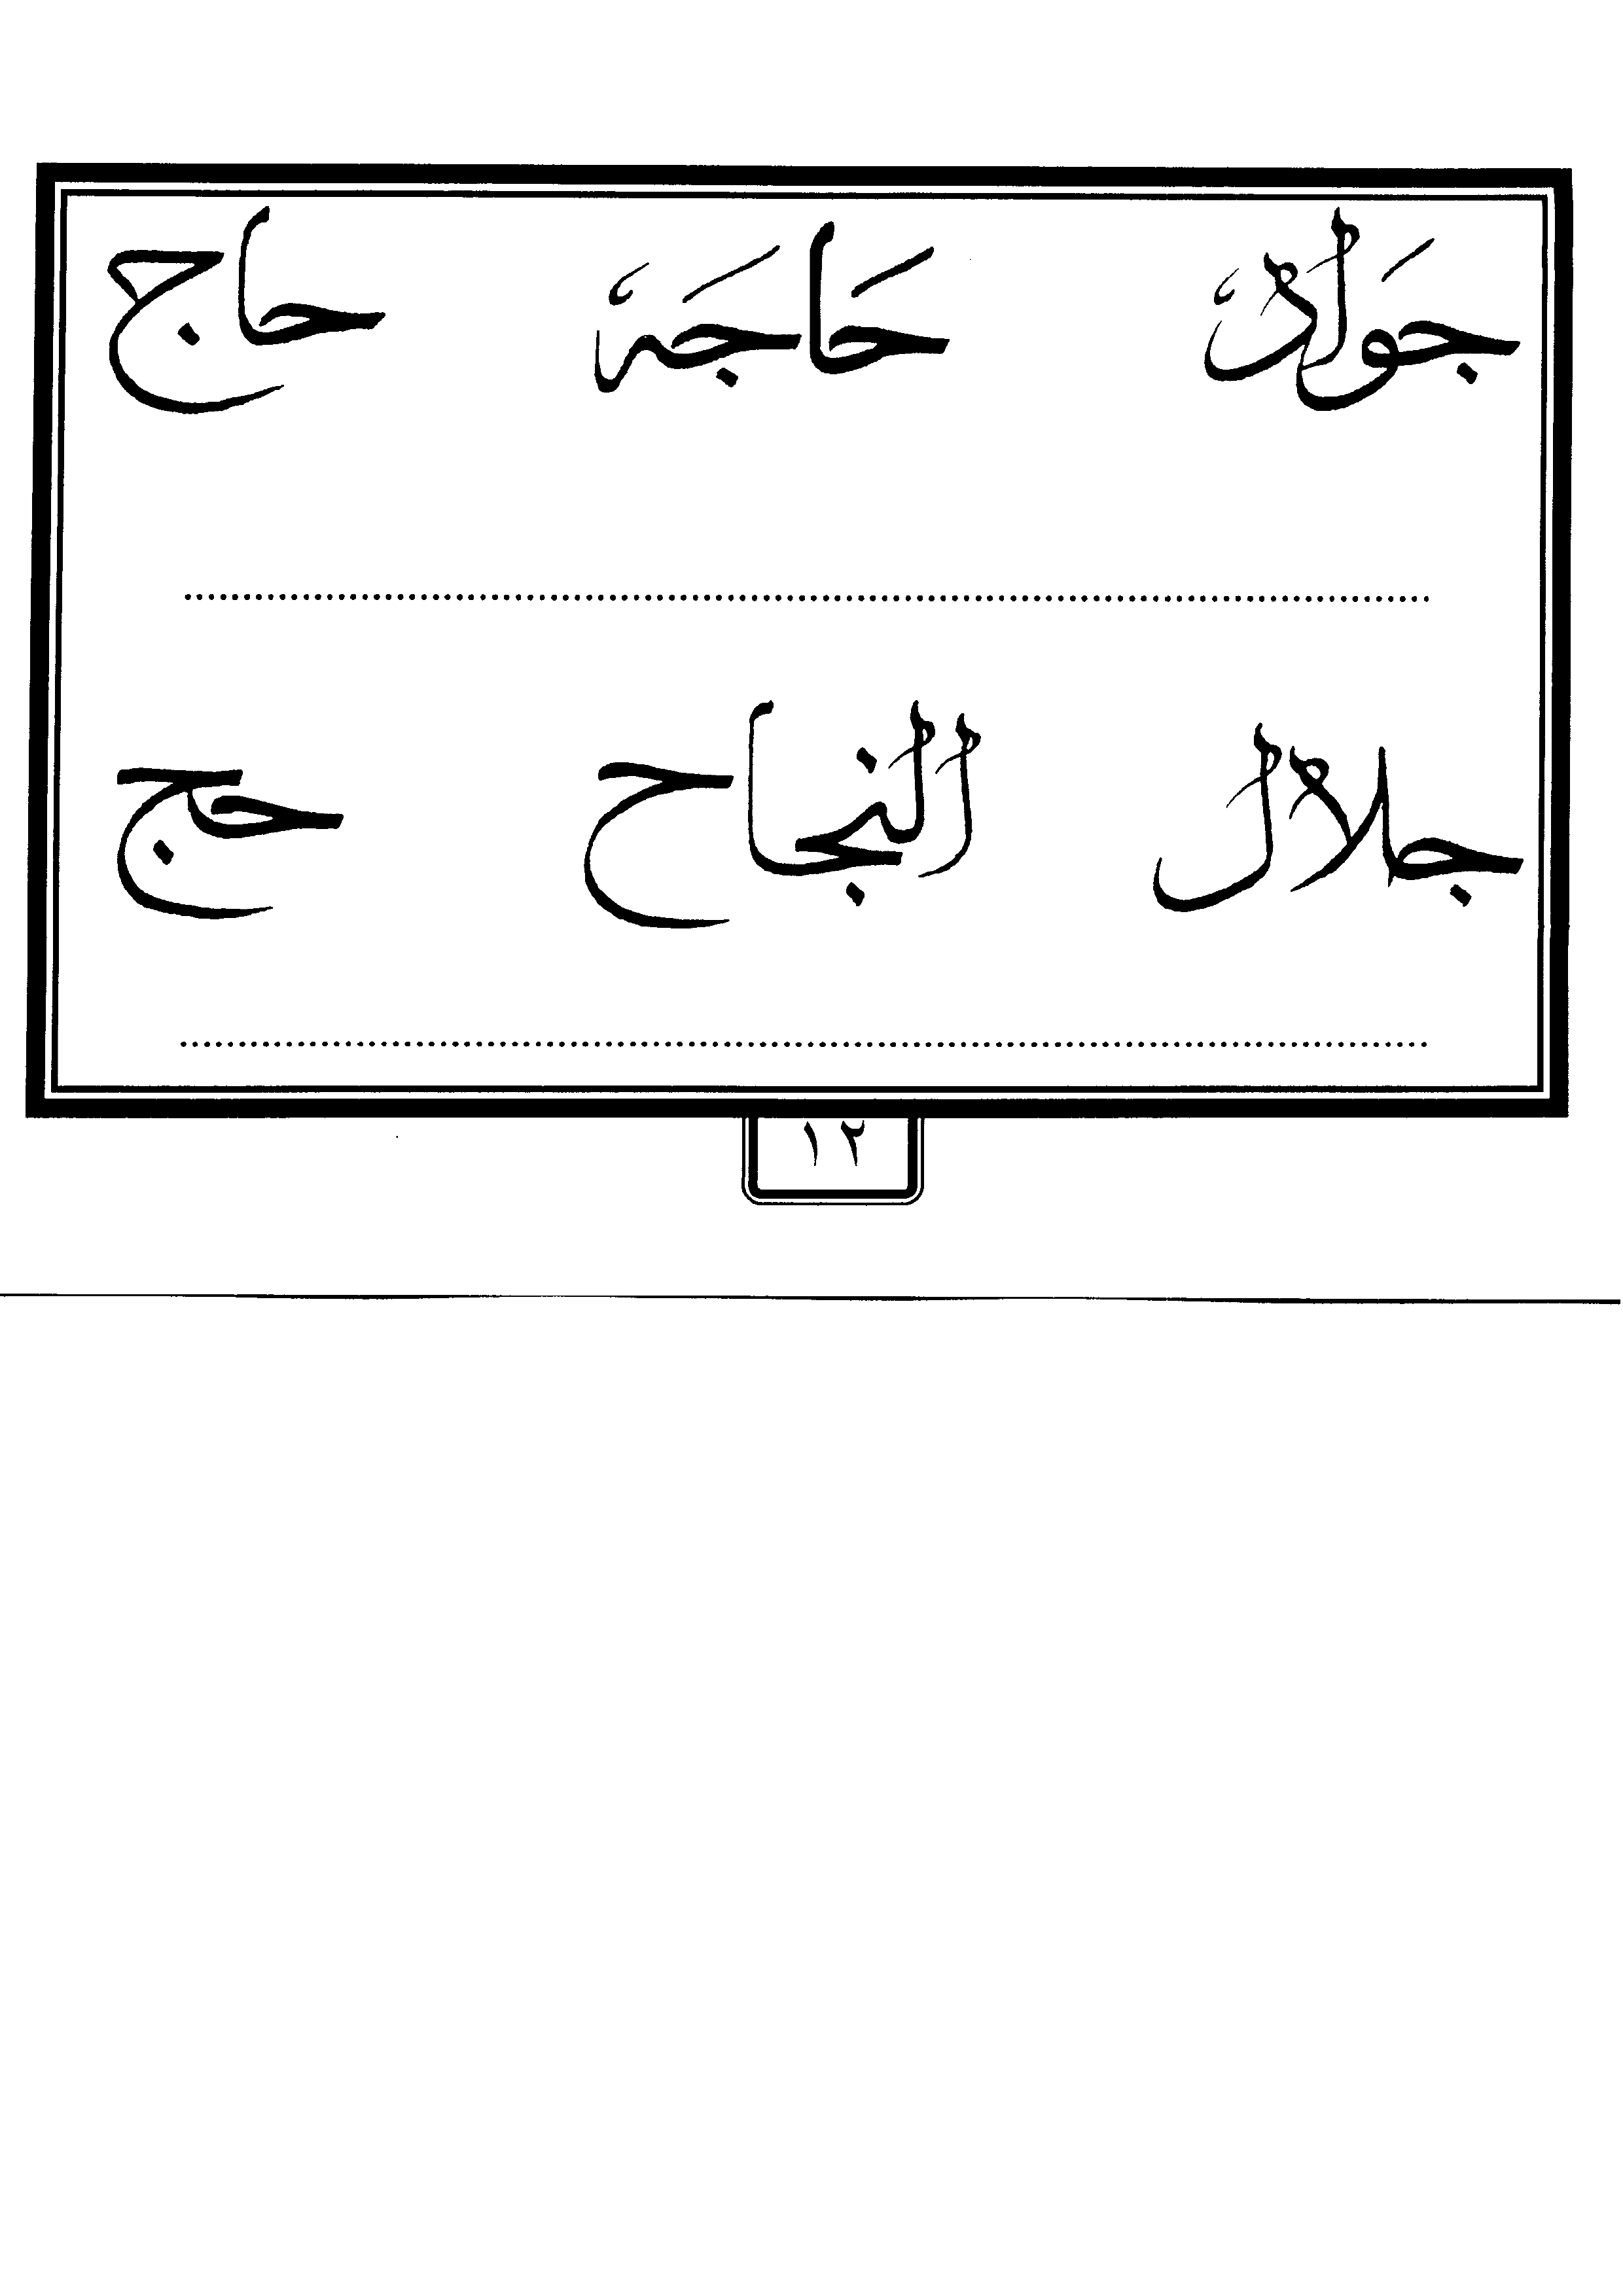 جَوادٌ حَاجَة حاج
جلال النجاح حج
١٢